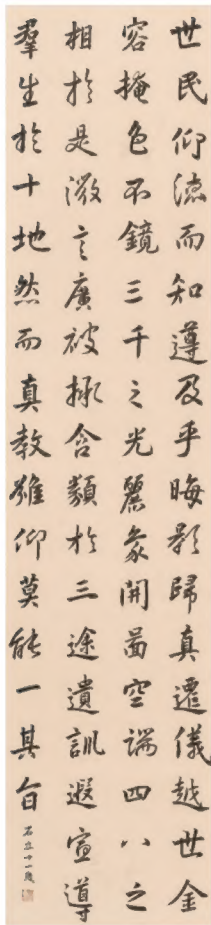 世民仰德而知遵及乎晦影歸真遷儀越世金
容掩色不鏡三千之光麗象開圖空端四八之
相於是微言廣被拯含類於三途遺訓遐宣導
羣生於十地然而真教難仰莫能一其旨